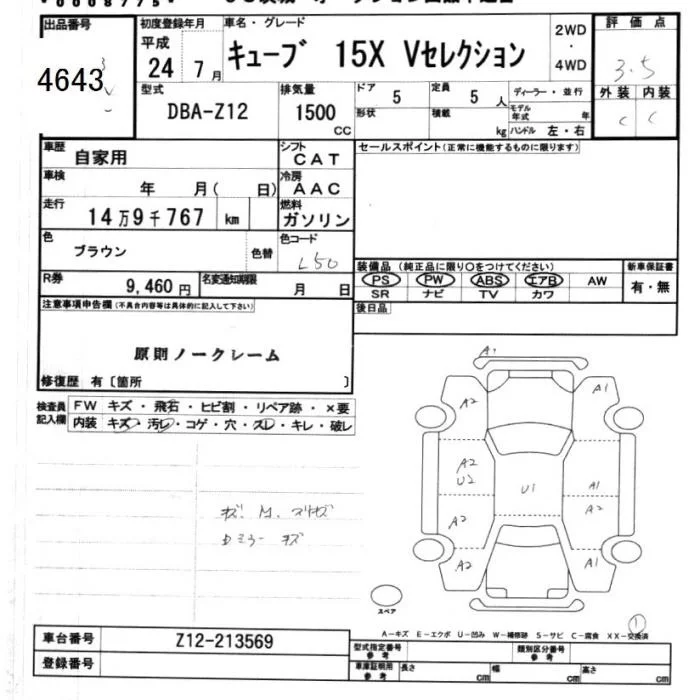 出品番号
4643
初度登録年月
平成
24 7月
車名・グレード
キューブ 15X Vセレクション
2WD
・
4WD
評価点
3.5
外装 内装
C C
型式
DBA-Z12
排気量
1500
CC
ドア
5
定員
5人
形状
積載
kg
ディーラー・並行
モデル年式 年
ハンドル 左・右
車歴
自家用
車検
年 月( 日)
走行
14万9千767 km
色
ブラウン
色替
シフト
CAT
冷房
AAC
燃料
ガソリン
色コード
L50
セールスポイント(正常に機能するものに限ります)
R券
9,460円
名変通知期限
月 日
装備品 (純正品に限り〇をつけてください)
PS PW ABS エアB AW
SR ナビ TV カワ
新車保証書
有・無
後日品
注意事項申告欄(不具合内容等は具体的に記入して下さい)
原則ノークレーム
修復歴 有〔箇所 〕
検査員記入欄
FW キズ・飛石・ヒビ割・リペア跡・×要
内装 キズ・汚レ・コゲ・穴・スレ・キレ・破レ
A1
A2
A1
A2
U2
U1
A1
A2
A2
A2
A1
スペア
1
A-キズ E-エクボ U-凹み W-補修跡 S-サビ C-腐食 XX-交換済
車台番号
Z12-213569
登録番号
型式指定番号
参考
類別区分番号
参考
車庫証明用
参考
長さ cm
幅 cm
高さ cm